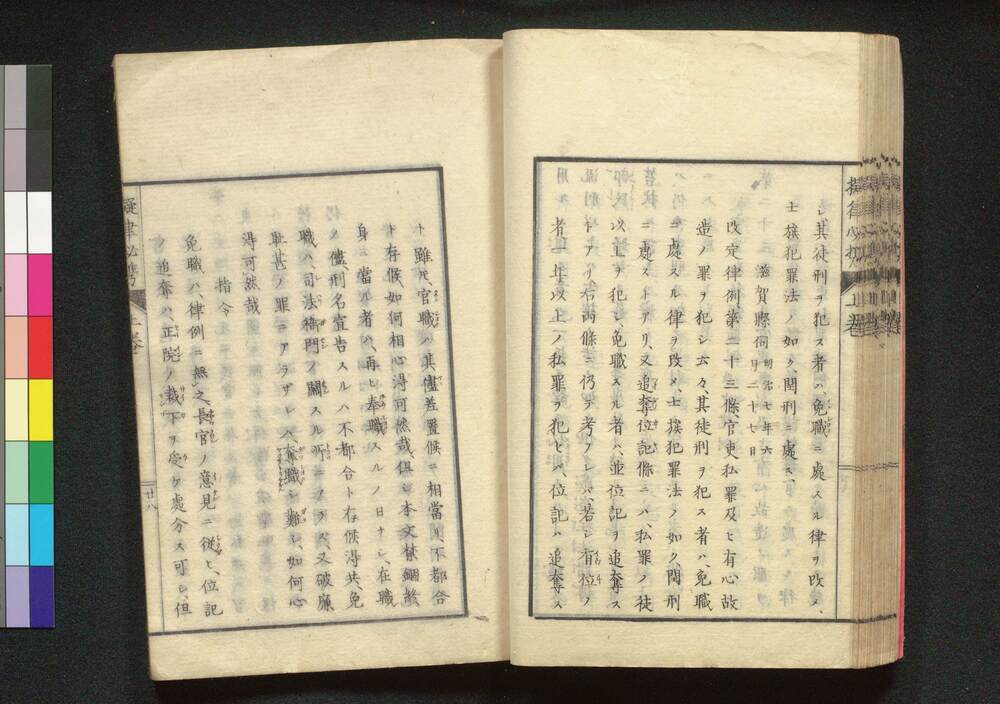 シ其徒刑ヲ犯ス者ハ免職ニ處スル律ヲ改メ、
士族犯罪法ノ如ク、閏刑ニ處ス、
滋賀縣伺 明治七年六月二十七日
改定律例、第二十三條、官吏私罪及ヒ有心故
造ノ罪ヲ犯シ云々、其徒刑ヲ犯ス者ハ、免職
ニ處スル律ヲ改メ、士族犯罪法ノ如ク、閏刑
ニ處ストアリ、又追奪位記條ニハ、私罪ノ徒
以上ヲ犯シ、免職スル者ハ、並位記ヲ追奪ス
トアリ、右両條ニ仍テ考フレハ、若シ有位ノ
者一年以上ノ私罪ヲ犯セハ、位記ハ追奪ス
ト雖𪜈、官職ハ其儘差置候ニ相當リ、不都合
ト存候、如何相心得可然哉、但シ本文禁錮終
身ニ當ル者ハ、再ヒ奉職スルノ日ナシ、在職
ノ儘、刑名宣告スルハ不都合ト存候得共、免
職ハ、司法衙門ノ關スル所ニアラス、又破廉
耻甚ノ罪ニアラザレハ、奪職シ難シ、如何心
得可然哉
指令
免職ハ、律例ニ無之、長官ノ意見ニ從ヒ、位記
追奪ハ、正院ノ裁下ヲ受ケ處分ス可シ、但
擬律必携 上卷
廿八
上卷